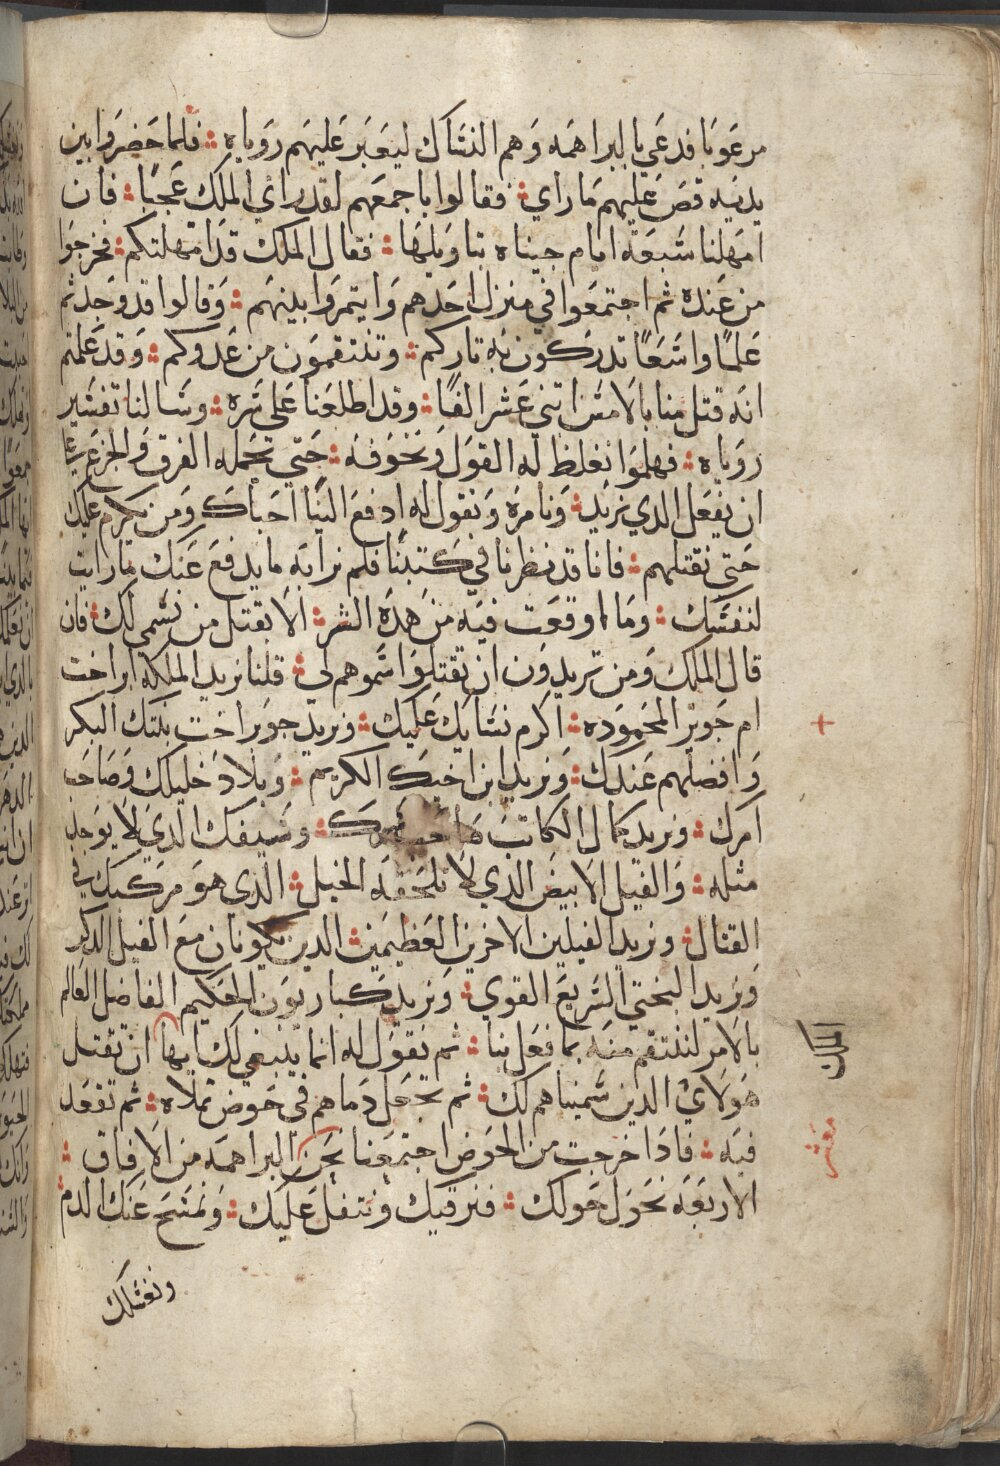 مرعوبا فدعي بالبراهمه وهم النساك ليعبر عليهم روياه ؞ فلما حضروا بين
يديه قص عليهم ما راي ؞ فقالوا باجمعهم لقد راي الملك عجبًا ؞ فان
امهلنا سبعة ايام جيناه بتاويلها ؞ فقال الملك قد امهلتكم ؞ فخرجوا
من عنده ثم اجتمعوا في منزل احدهم وايتمروا بينهم ؞ وقالوا قد وجدتم
علمًا واسعًا تدركون به تاركم ؞ وتنتقمون من عدوكم ؞ وقد علمتم
انه قتل منا بالامس اتني عشر الفًا ؞ وقد اطلعنا على سره ؞ وسالنا تفسير
روياه ؞ فهلموا نغلظ له القول ونخوفه ؞ حتي تحمله الفرق والجزع علي
ان يفعل الدي نريد ؞ ونامره ونقول له ادفع الينا احباك ومن يكرم عليك
حتي نقتلهم ؞ فانا قد نظرنا في كتبنا فلم نرا به ما يدفع عنك ما رايت
لنفسك ؞ وما وقعت فيه من هده الشر ؞ الا بقتل من نسمي لك ؞ فان
قال الملك ومن تريدون ان تقتلوا سموهم لي ؞ قلنا نريد الملكه ايراخت
ام جوبر المحموده ؞ اكرم نسايك عليك ؞ ونريد جوبر اخت بنتك البكر
وافضلهم عندك ؞ ونريد ابن اخيك الكريم ؞ وبلاد خليلك وصاحب
امرك ؞ ونريد كمال الكاتب صاحب سرك ؞ وسيفك الدي لا يوجد
مثله ؞ والفيل الابيض الدي لا تلحقه الخيل ؞ الدي هو مركبك في
القتال ؞ ونريد الفيلين الاخرين العظيمين ؞ الدين يكونان مع الفيل الدكر
ونريد البختي السريع القوي ؞ ونريد كباريون الحكيم الفاضل العالم
بالامر لننتقم منه بما فعل بنا ؞ ثم نقول له انما ينبغي لك ايها ان تقتل
الملك
هولاي الدين سميناهم لك ؞ ثم تجعل دماهم في حوض تملاه ؞ ثم تقعد
فيه ؞ فادا خرجت من الحوض اجتمعنا نحن البراهمه من الافاق ؞
معشر
الاربعه نحول حولك ؞ فنرقيك ونتفل عليك ؞ ونمسح عنك الدم
ونغسلك